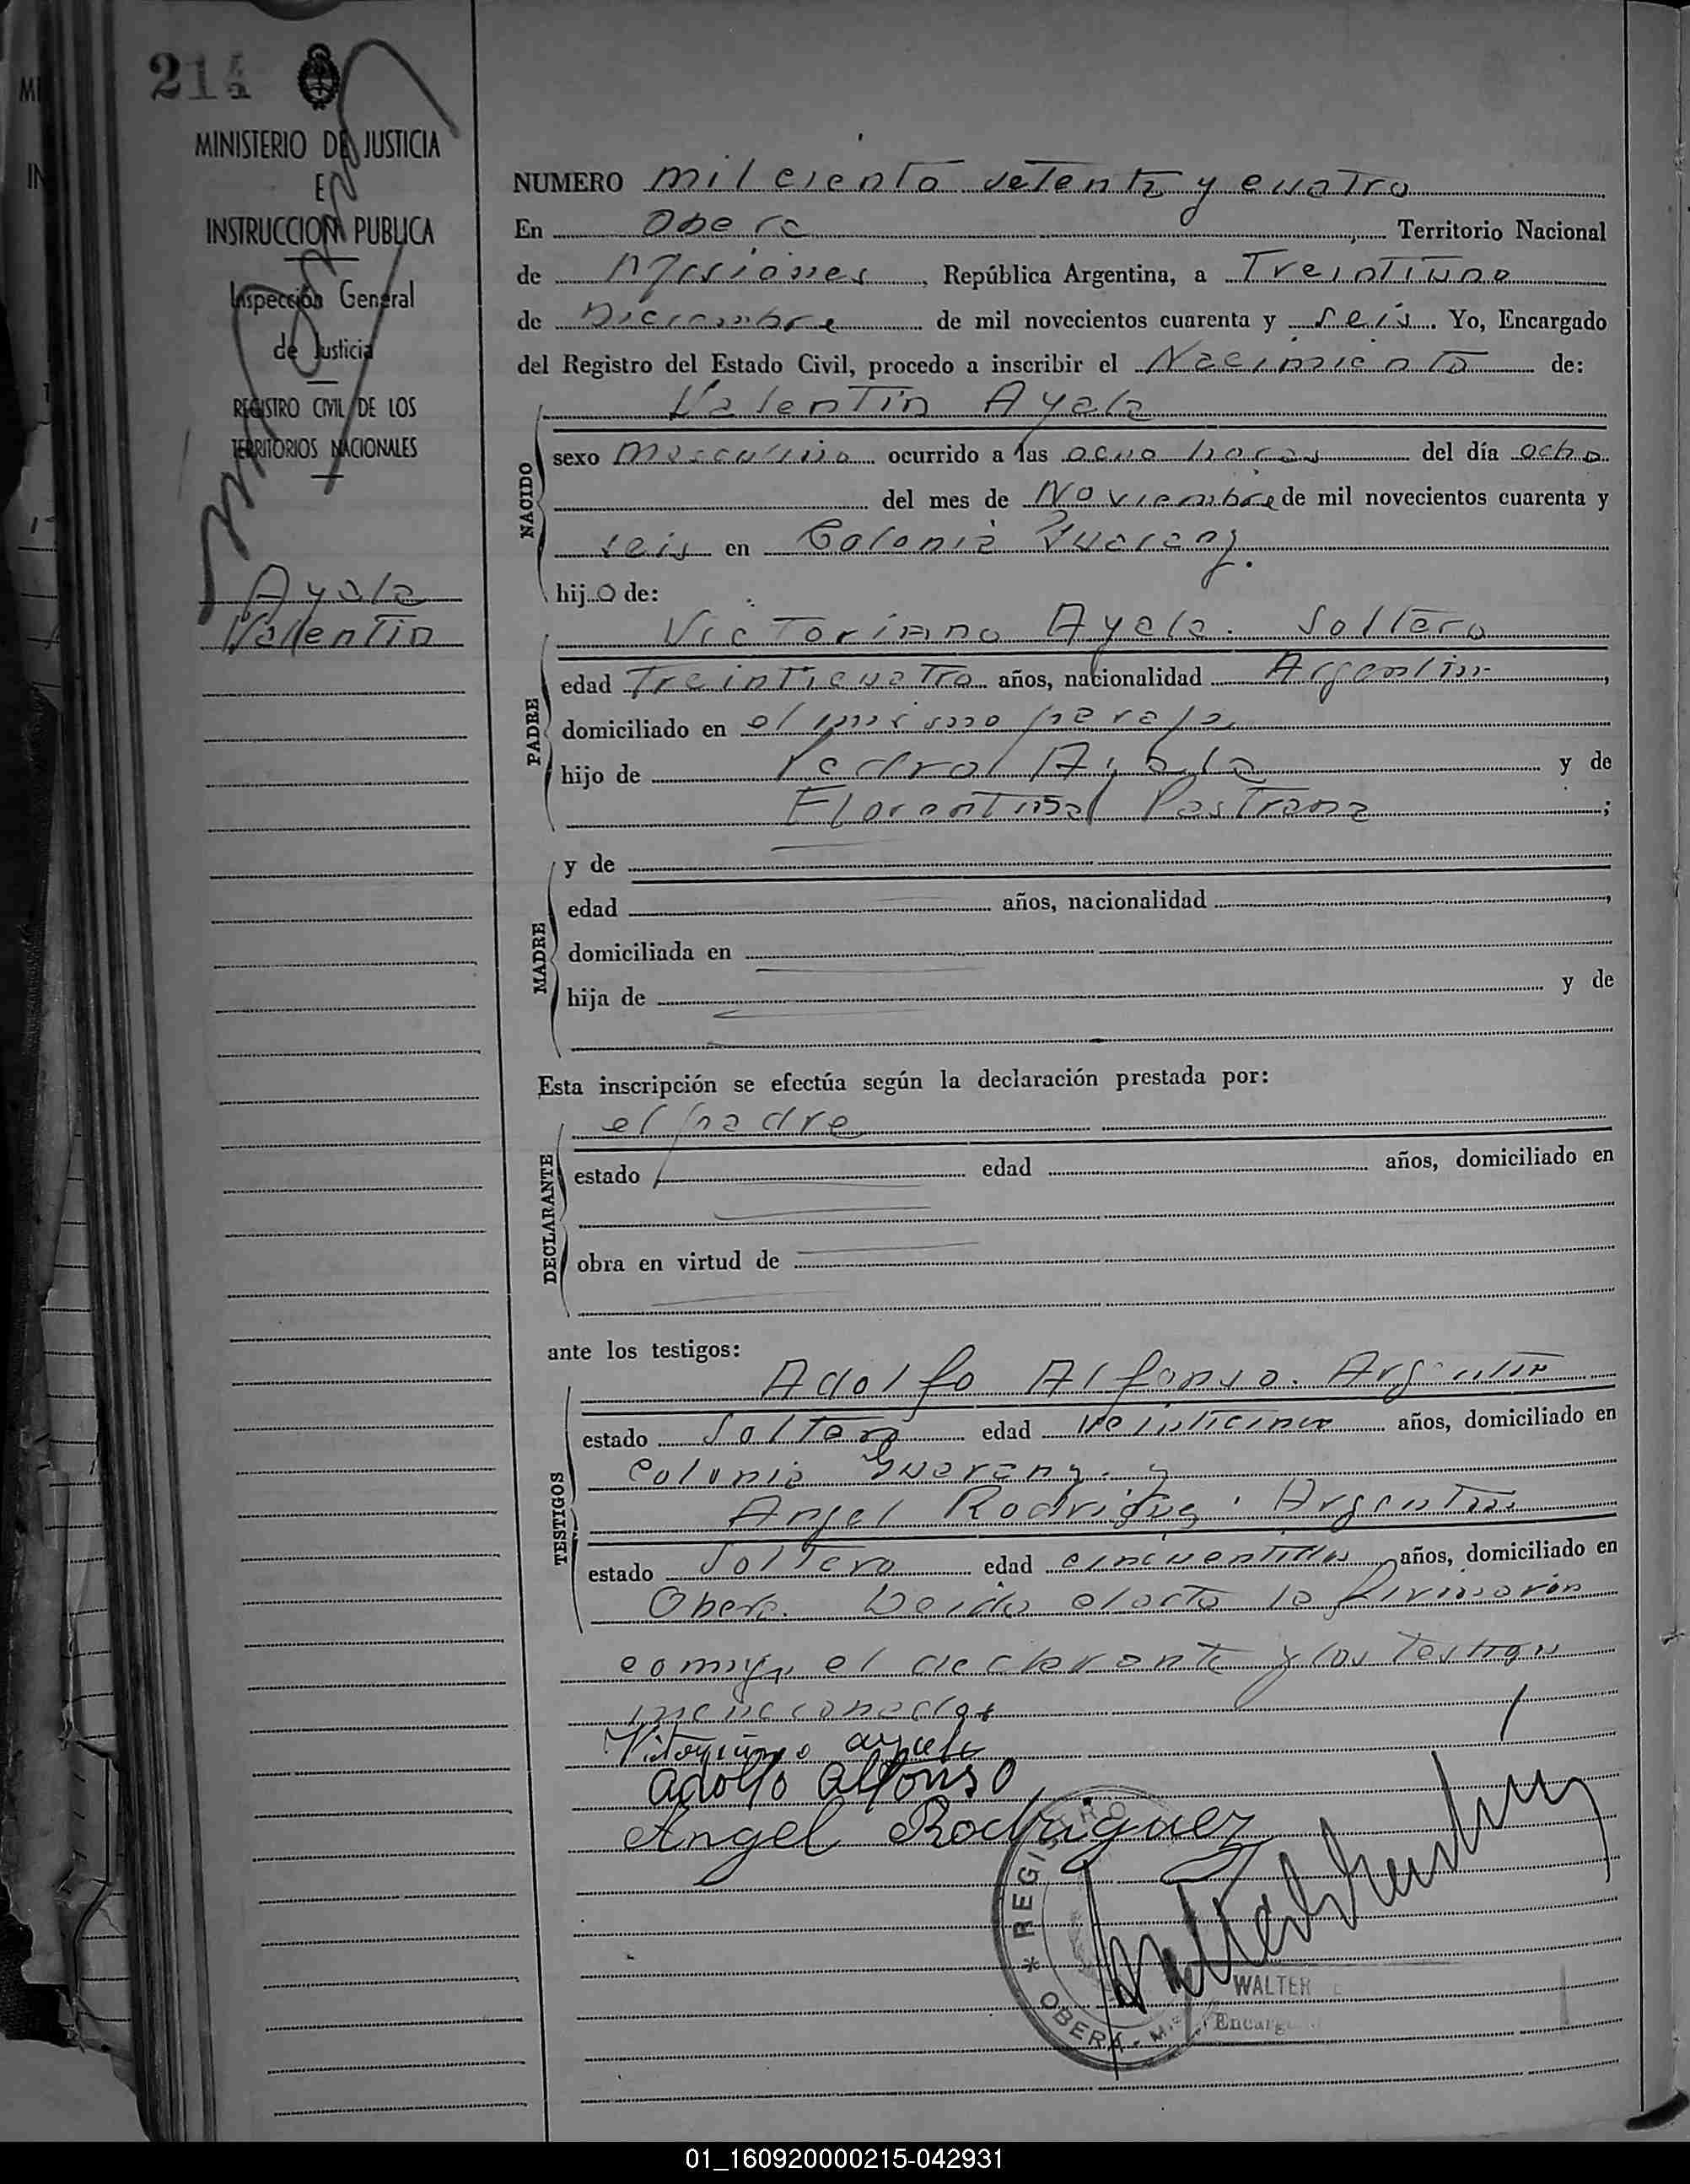 214
MINISTERIO DE JUSTICIA
E
INSTRUCCION PUBLICA
Inspección General
de Justicia
REGISTRO CIVIL DE LOS
TERRITORIOS NACIONALES
Ayala
Valentin
NUMERO mil ciento setenta y cuatro
En Obera, Territorio Nacional
de Misiones, República Argentina, a Treintiuno
de Diciembre de mil novecientos cuarenta y seis. Yo, Encargado
del Registro del Estado Civil, procedo a inscribir el Nacimiento de:
NACIDO
Valentin Ayala
sexo Masculino ocurrido a las ocho horas del día ocho
del mes de Noviembre de mil novecientos cuarenta y
seis en Colonia Guarany.
hijo de:
PADRE
Victoriano Ayala. Soltero
edad Treinticuatro años, nacionalidad Argentin
domiciliado en el mismo paraje
hijo de Pedro Ayala y de
Florentina Pastrana;
MADRE
y de
edad años, nacionalidad,
domiciliada en
hija de y de
Esta inscripción se efectúa según la declaración prestada por:
DECLARANTE
el padre
estado edad años, domiciliado en
obra en virtud de
ante los testigos:
TESTIGOS
Adolfo Alfonso. Argentin
estado Soltero edad veinticinco años, domiciliado en
Colonia Guarany. y
Angel Rodrigues. Argentin
estado Soltero edad años, domiciliado en
Obera. Leida el acta la firmaron
comigo el declarante y los testigos
mencionados
Vitoriano ayala
adolfo alfonso
Angel Rodriguez
REGISTRO
OBERA - M
WALTER
Encarg
01_160920000215-042931